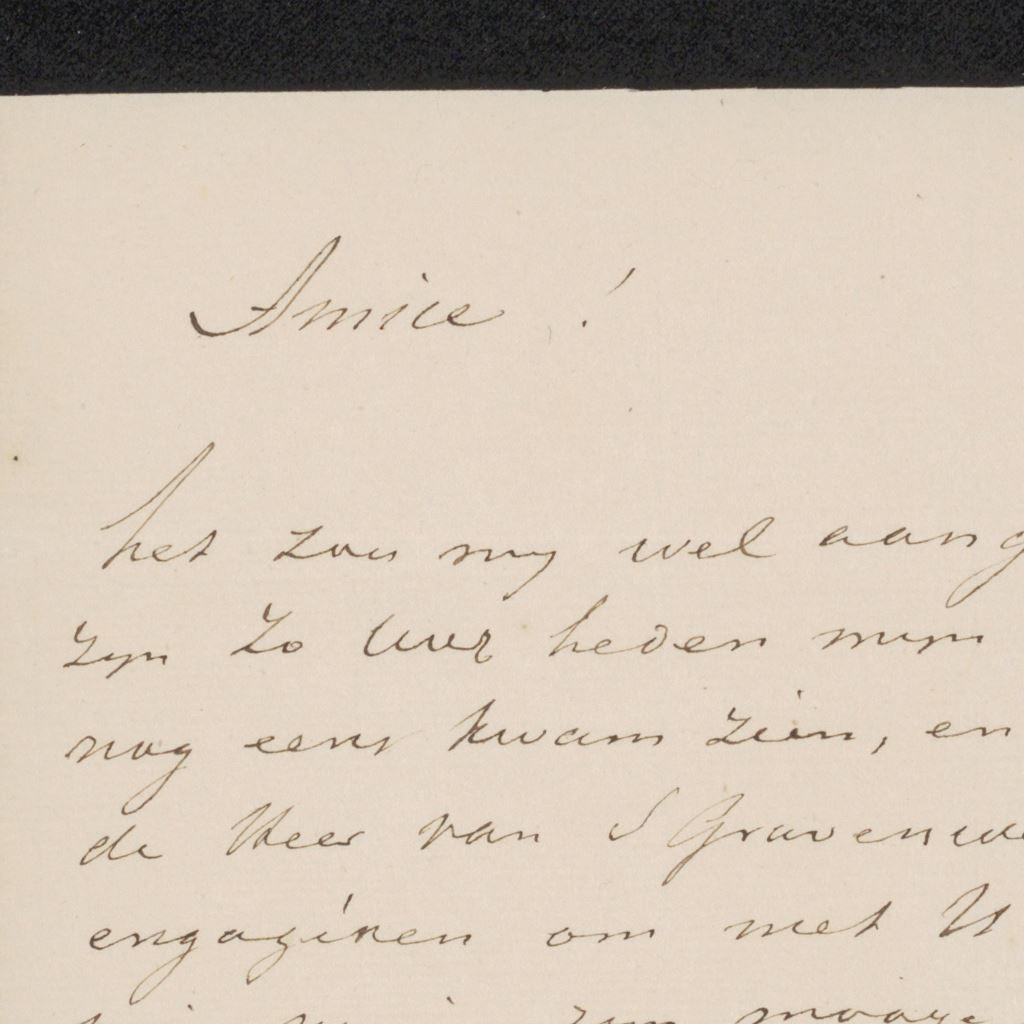 Amice!
het zou mij wel aang
zijn zo UwE heden mijn
nog eens kwam zien, en
de Heer van S Gravenwe
engagéren om met U